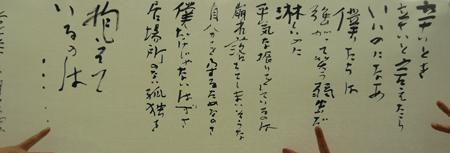 辛いとき
辛いと言えたら
いいのになあ
僕たちは
強がって笑う弱虫だ
淋しいのに
平気な振りをしているのは
崩れ落ちてしまいそうな
自分を守るためなのさ
僕だけじゃないはずさ
居場所のない孤独を
抱えて
いるのは
・・・・・・